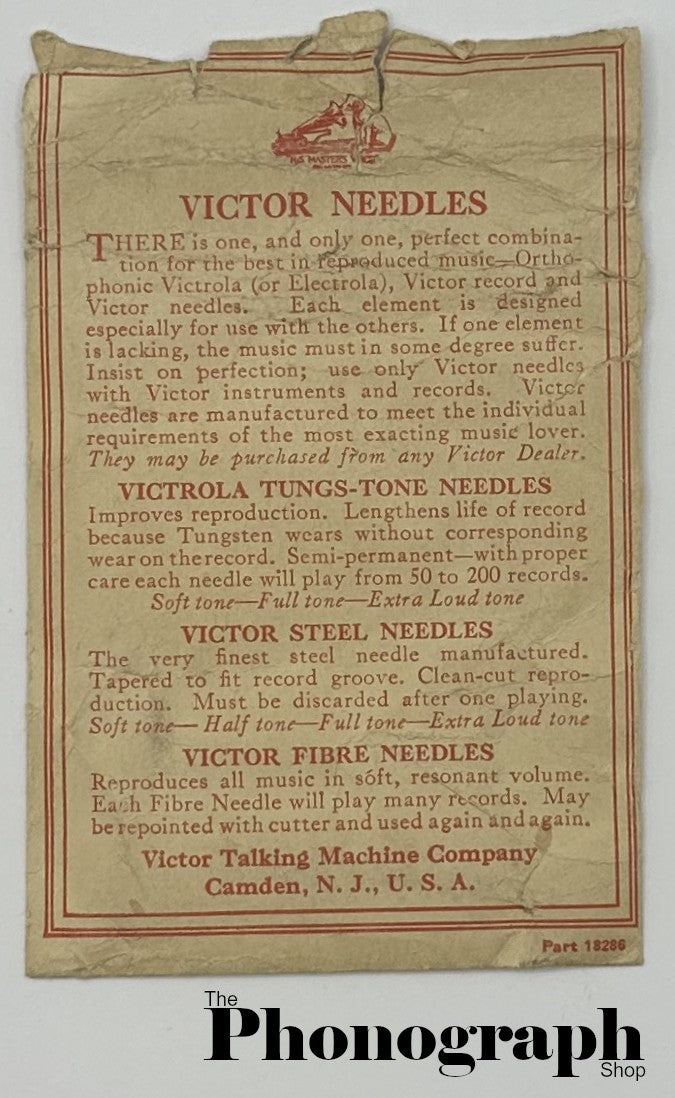 HIS MASTER'S VOICE
VICTOR NEEDLES
THERE is one, and only one, perfect combina-
tion for the best in reproduced music—Ortho-
phonic Victrola (or Electrola), Victor record and
Victor needles. Each element is designed
especially for use with the others. If one element
is lacking, the music must in some degree suffer.
Insist on perfection; use only Victor needles
with Victor instruments and records. Victor
needles are manufactured to meet the individual
requirements of the most exacting music lover.
They may be purchased from any Victor Dealer.
VICTROLA TUNGS-TONE NEEDLES
Improves reproduction. Lengthens life of record
because Tungsten wears without corresponding
wear on the record. Semi-permanent—with proper
care each needle will play from 50 to 200 records.
Soft tone—Full tone—Extra Loud tone
VICTOR STEEL NEEDLES
The very finest steel needle manufactured.
Tapered to fit record groove. Clean-cut repro-
duction. Must be discarded after one playing.
Soft tone—Half tone—Full tone—Extra Loud tone
VICTOR FIBRE NEEDLES
Reproduces all music in soft, resonant volume.
Each Fibre Needle will play many records. May
be repointed with cutter and used again and again.
Victor Talking Machine Company
Camden, N. J., U. S. A.
Part 18286
The
Phonograph
Shop